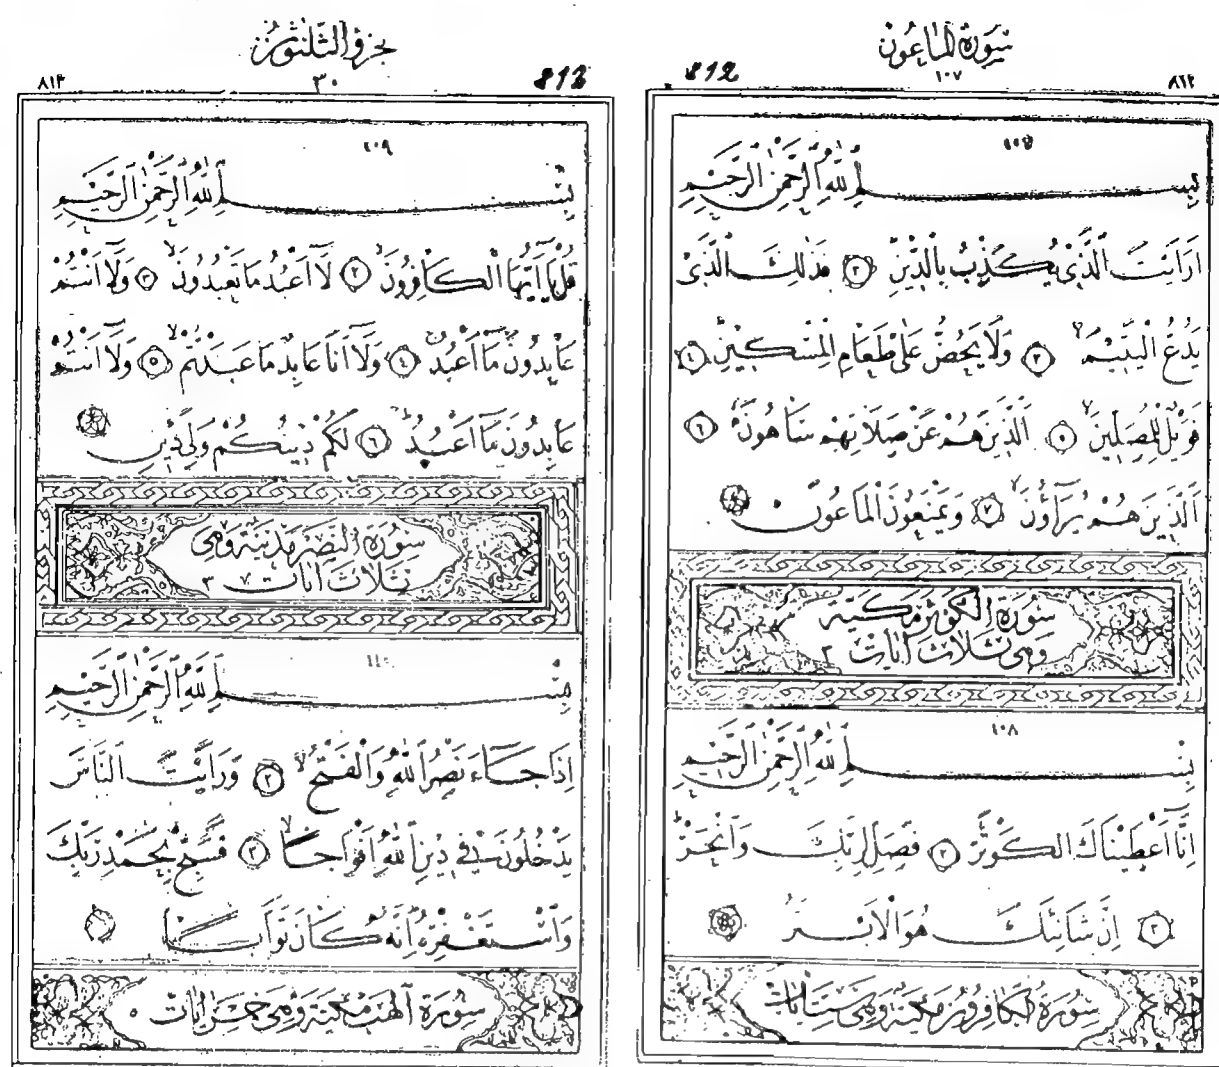 سورة الماعون
812 ١٠٧ ٨١٢
١٠٧
بِسْمِ اللّٰهِ الرَّحْمٰنِ الرَّحِيمِ
اَرَاَيْتَ الَّذِي يُكَذِّبُ بِالدِّينِ ٢ فَذٰلِكَ الَّذِي
يَدُعُّ الْيَتِيمَ ٣ وَلَا يَحُضُّ عَلٰى طَعَامِ الْمِسْكِينِ ٤
فَوَيْلٌ لِلْمُصَلِّينَ ٥ اَلَّذِينَ هُمْ عَنْ صَلَاتِهِمْ سَاهُونَ ٦
اَلَّذِينَ هُمْ يُرَآؤُنَ ٧ وَيَمْنَعُونَ الْمَاعُونَ
سُورَةُ الْكَوْثَرِ مَكِّيَّة
وَهِيَ ثَلَاثُ اٰيَاتٍ ٣
١٠٨
بِسْمِ اللّٰهِ الرَّحْمٰنِ الرَّحِيمِ
اِنَّٓا اَعْطَيْنَاكَ الْكَوْثَرَ ٢ فَصَلِّ لِرَبِّكَ وَانْحَرْ
٣ اِنَّ شَانِئَكَ هُوَ الْاَبْتَرُ
سُورَةُ الْكَافِرُونَ مَكِّيَّة وَهِيَ سِتُّ اٰيَاتٍ
813 ٣٠ ٨١٣
١٠٩
بِسْمِ اللّٰهِ الرَّحْمٰنِ الرَّحِيمِ
قُلْ يَٓا اَيُّهَا الْكَافِرُونَ ٢ لَٓا اَعْبُدُ مَا تَعْبُدُونَ ٣ وَلَٓا اَنْتُمْ
عَابِدُونَ مَٓا اَعْبُدُ ٤ وَلَٓا اَنَا عَابِدٌ مَا عَبَدْتُمْ ٥ وَلَٓا اَنْتُمْ
عَابِدُونَ مَٓا اَعْبُدُ ٦ لَكُمْ دِينُكُمْ وَلِيَ دِينِ
سُورَةُ النَّصْرِ مَدَنِيَّة وَهِيَ
ثَلَاثُ اٰيَاتٍ ٣
١١٠
بِسْمِ اللّٰهِ الرَّحْمٰنِ الرَّحِيمِ
اِذَا جَٓاءَ نَصْرُ اللّٰهِ وَالْفَتْحُ ٢ وَرَاَيْتَ النَّاسَ
يَدْخُلُونَ فِي دِينِ اللّٰهِ اَفْوَاجًا ٣ فَسَبِّحْ بِحَمْدِ رَبِّكَ
وَاسْتَغْفِرْهُ اِنَّهُ كَانَ تَوَّابًا
سُورَةُ اللَّهَب مَكِّيَّة وَهِيَ خَمْسُ اٰيَاتٍ ٥